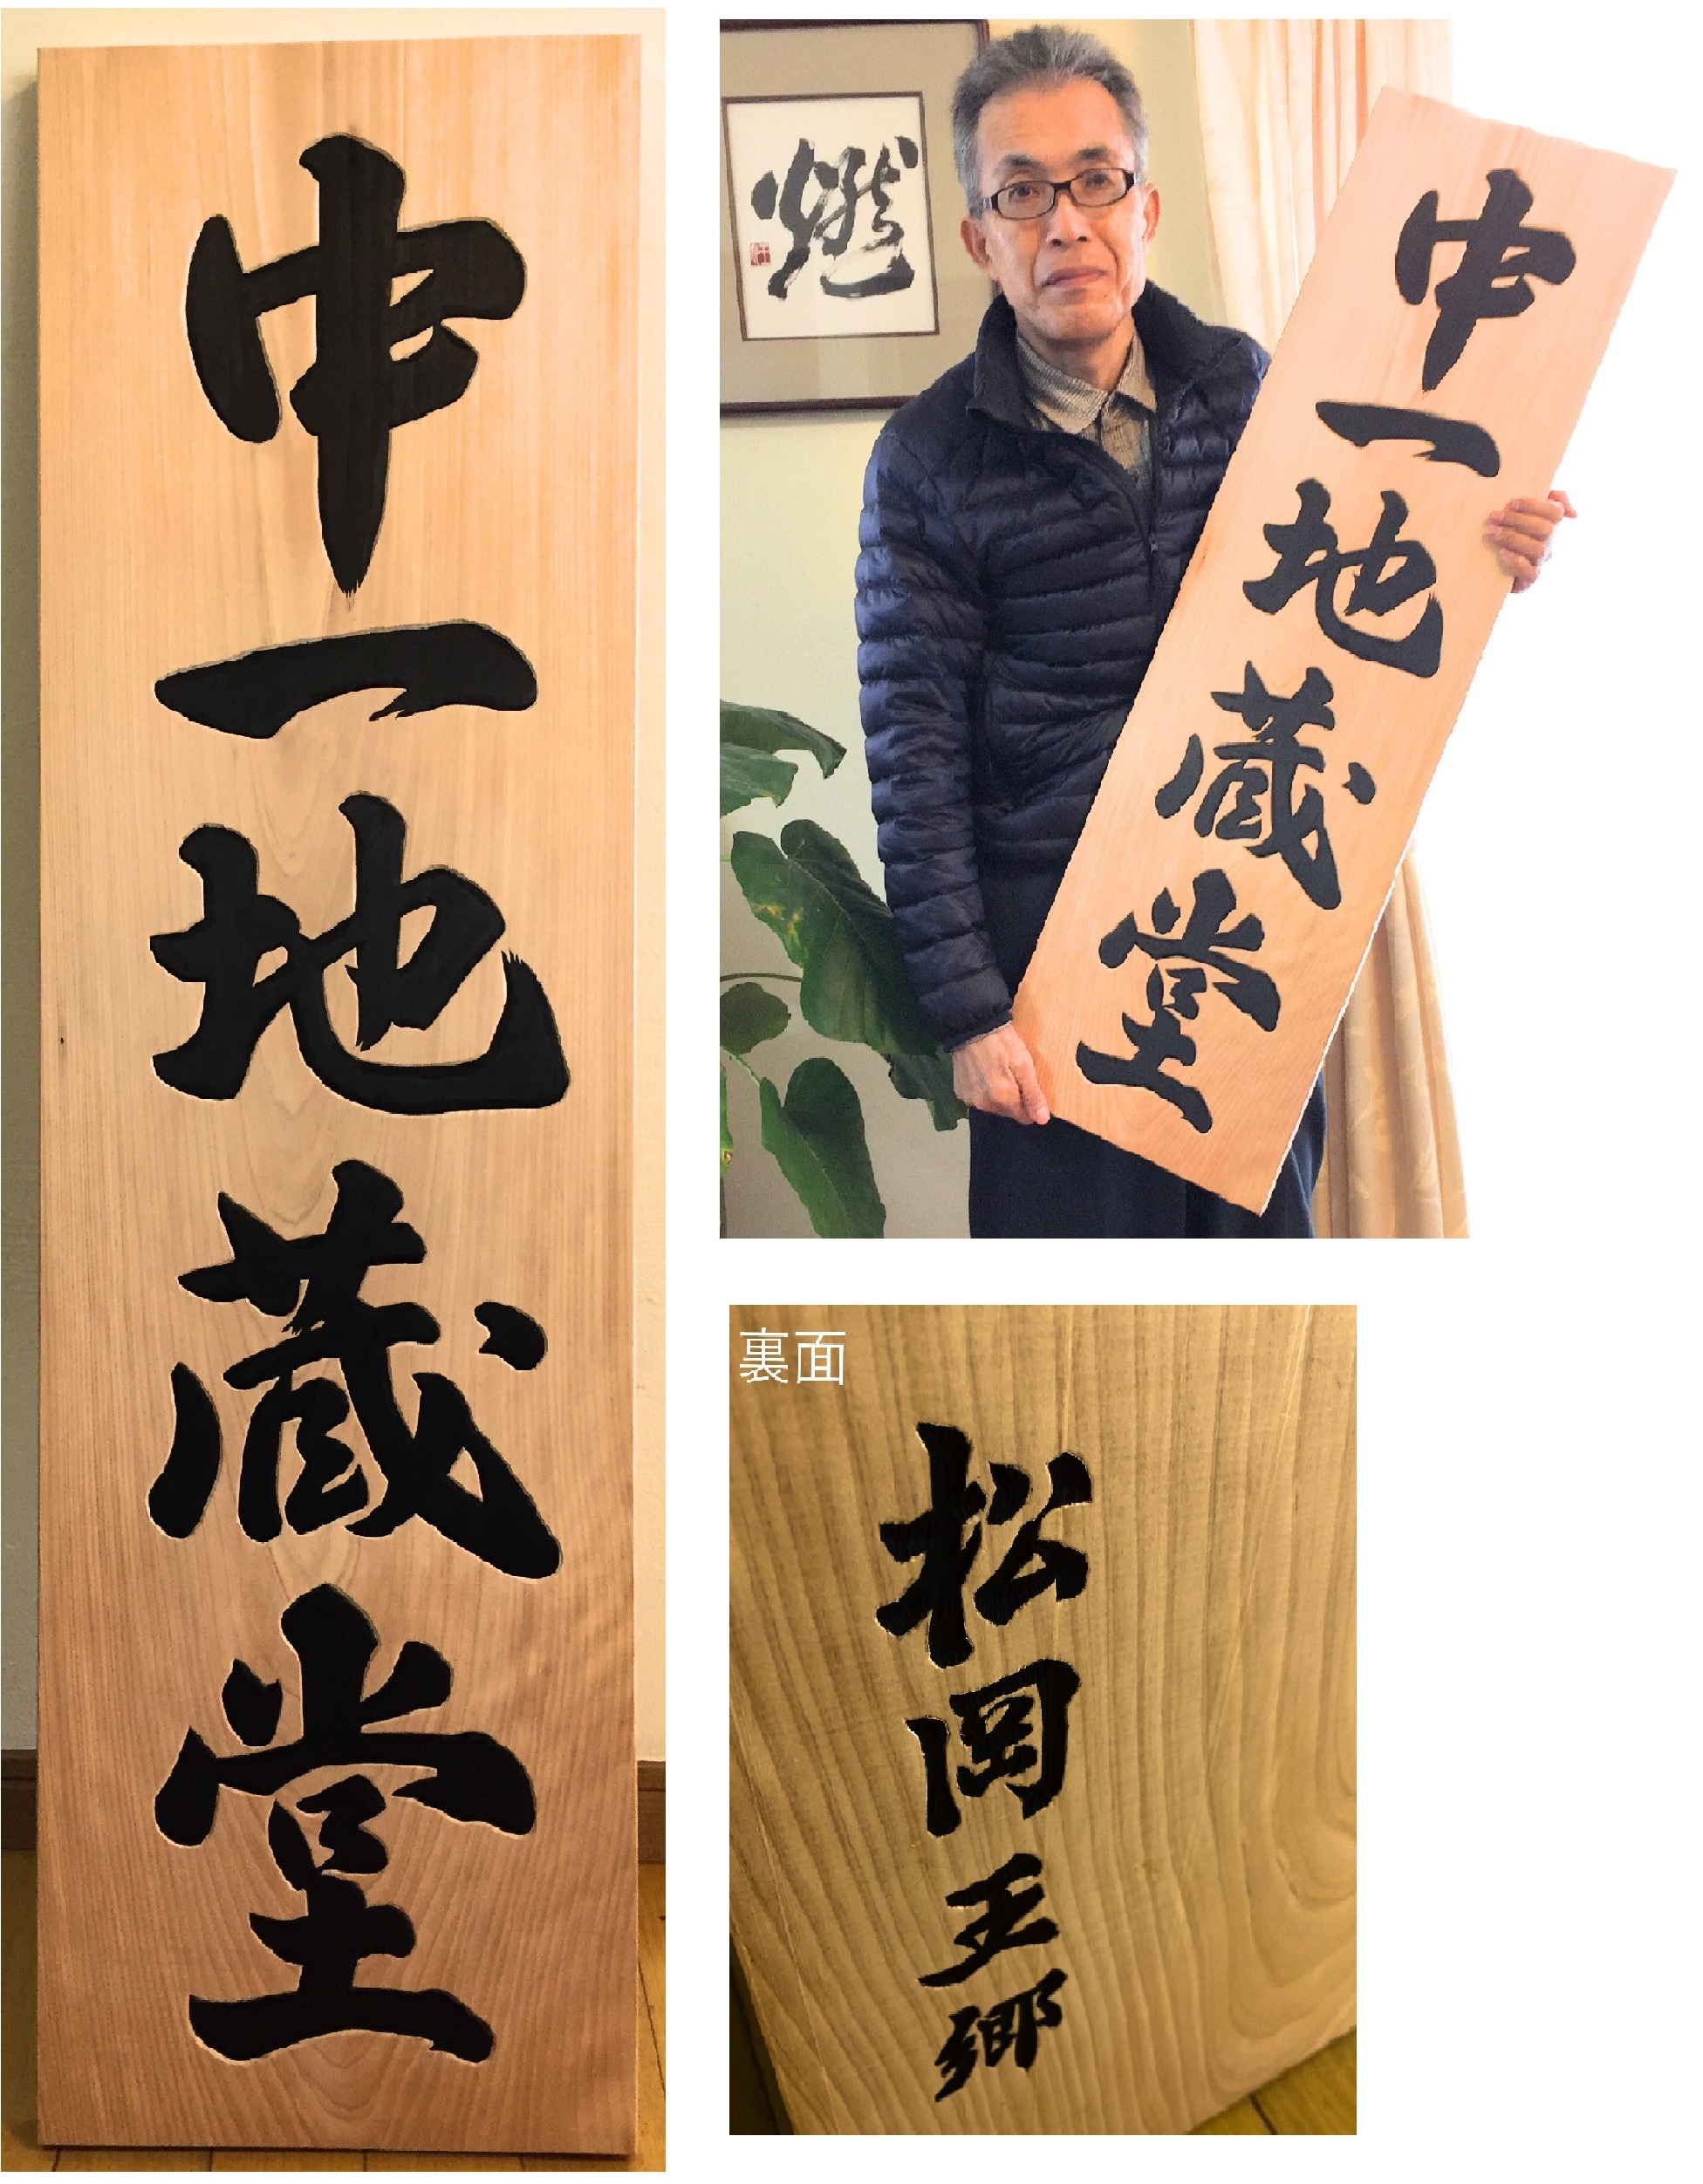 中一地蔵堂
燃
中一地蔵堂
裏面
松岡玉郷